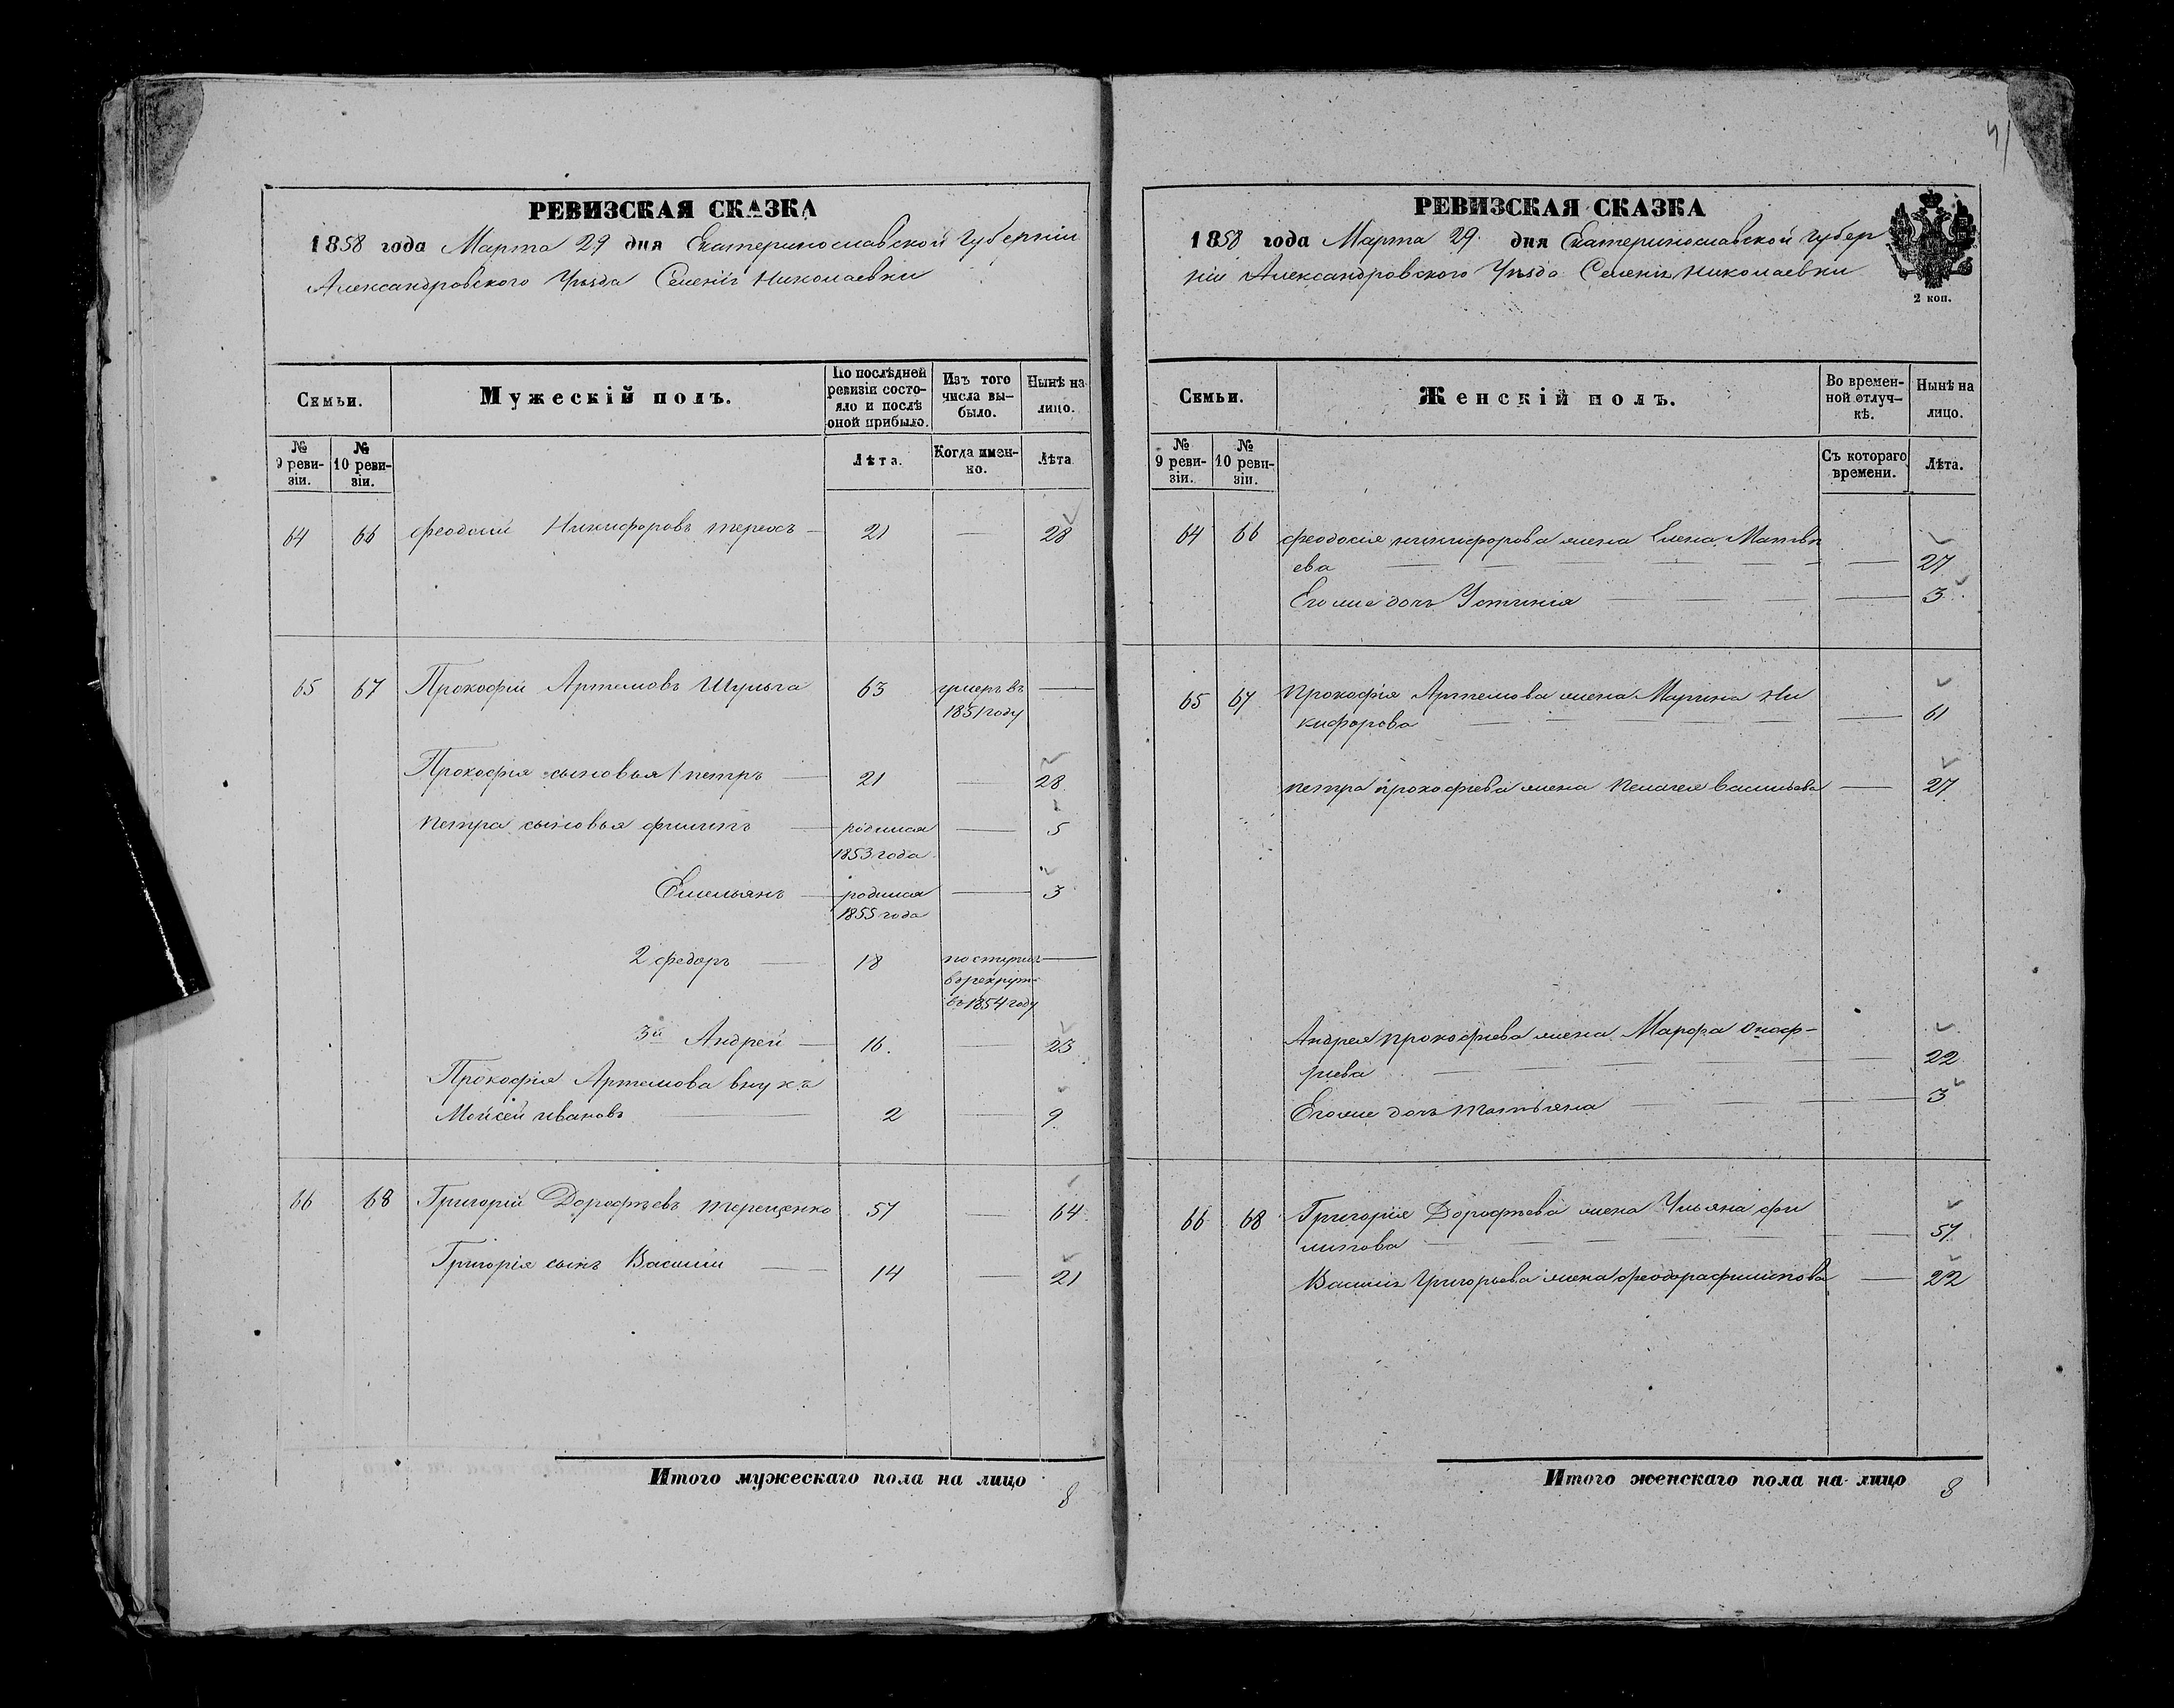 РЕВИЗСКАЯ СКАЗКА
1858 года Марта 29 дня Екатеринославской Губерніи
Александровского Уѣзда Селенія Николаевки
Семьи.
Мужескій полъ.
По послѣдней ревизіи состояло и послѣ оной прибыло.
Изъ того числа выбыло.
Нынѣ на лицо.
№ 9 ревизіи.
№ 10 ревизіи.
Лѣта.
Когда именно.
Лѣта
64 66 Феодосій Никифоровъ 21 — 28
65 67 Прокофій Артемовъ Шульга 63 умеръ въ —
1851 году
Прокофія сыновья 1 петръ — 21 — 28
петра сыновья филипъ — родился — 5
1853 года
Емельянъ — родился — 3
1855 года
2 федоръ — 18 поступил —
в рекруты
въ 1854 году
3й Андрей — 16. — 23
Прокофія Артемова внукъ
Мойсей ивановъ — 2 — 9.
66 68 Григорій Дорофѣевъ терещенко 57 — 64.
Григорія сынъ Василий — 14 — 21
Итого мужескаго пола на лицо 8
41
РЕВИЗСКАЯ СКАЗКА
1858 года Марта 29. дня Екатеринославской губер
ніи Александровского Уѣзда Селенія Николаевки
2 коп.
Семьи.
Женскій полъ.
Во временной отлучкѣ.
Нынѣ на лицо.
№ 9 ревизіи.
№ 10 ревизіи.
Съ котораго времени.
Лѣта.
64 66 феодосия никифорова жена Елена Матвѣ
ева — — 27
Его же дочь Устинія — — 3.
65 67 Прокофія Артемова жена Марина Ни
кифорова — — 61
петра прокофьева жена пелагея васильева — 27.
Андрея прокофьева жена Марфа Оноф-
риева — — 22
Его же дочь татьяна — — 3
66 68 Григорія Дорофѣева жена Ульяна фи
липова — — 57.
Василія Григорьева жена феодора филипова — 22
Итого женскаго пола на лицо 8